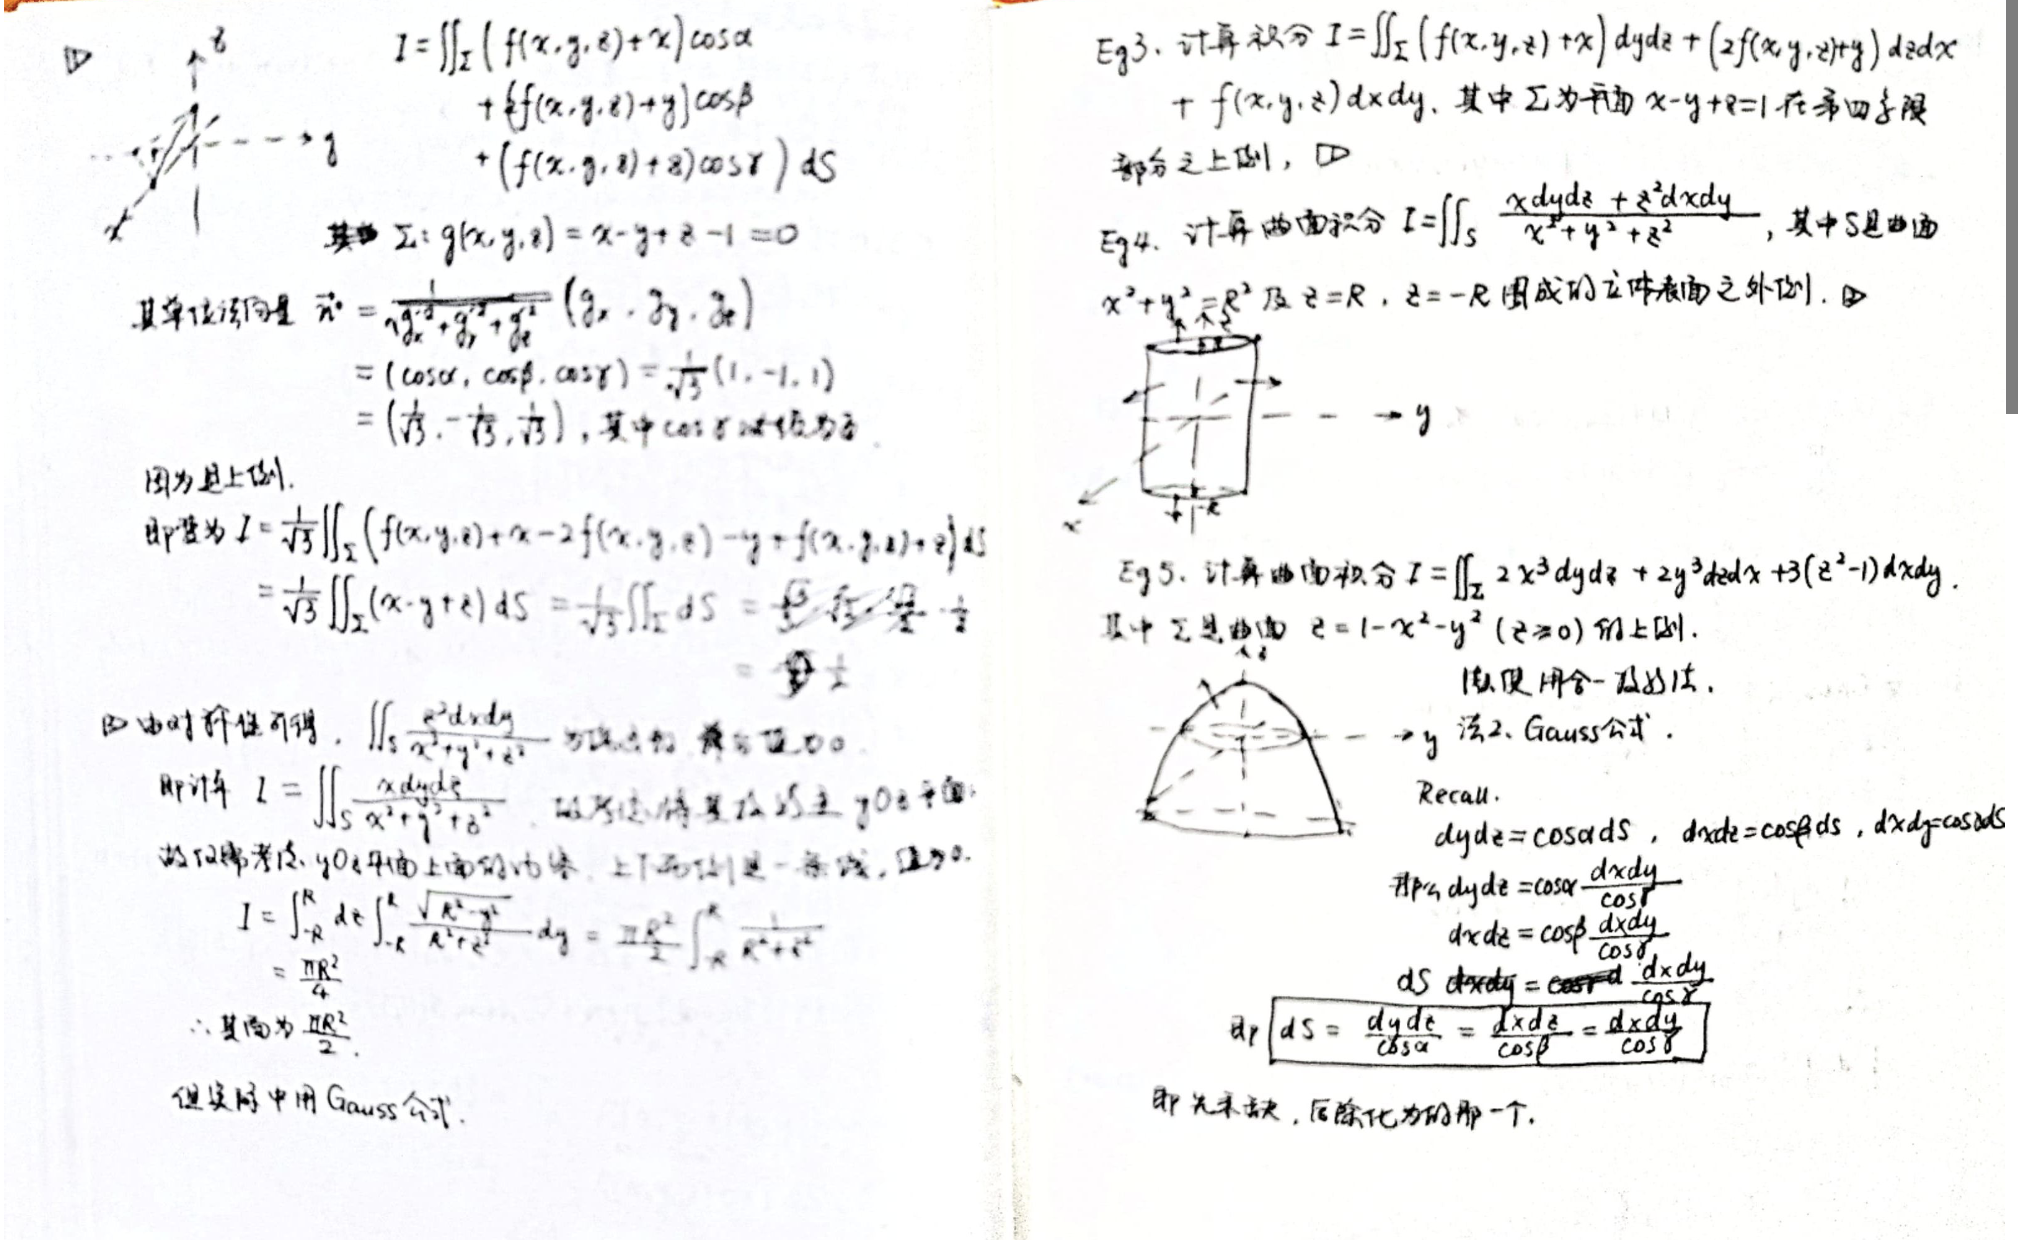 I=∬_Σ(f(x,y,z)+x)cosα
+(2f(x,y,z)+y)cosβ
+(f(x,y,z)+z)cosγ)dS
z
y
x
其中 Σ: g(x,y,z)=x-y+z-1=0
其单位法向量 n⁰ = 1/√(g'x²+g'y²+g'z²) (gx, gy, gz)
=(cosα, cosβ, cosγ)=1/√3(1,-1,1)
=(1/√3, -1/√3, 1/√3), 其中cosγ 为
因为是上侧.
即变为 I=1/√3∬_Σ(f(x,y,z)+x-2f(x,y,z)-y+f(x,y,z)+z)dS
=1/√3∬_Σ(x-y+z)dS=1/√3∬_Σ dS =
= 1/2
▷ 由对称性可得, ∬_S z²dxdy/(x²+y²+z²) 值为0.
即计算 I=∬_S xdydz/(x²+y²+z²) yOz平面
故仅需考虑yOz平面上面的 上下两侧是一条线, 值为0.
I=∫_{-R}^{R}dz∫_{-R}^{R} √(R²-y²)/(R²+z²) dy = πR²/2 ∫_{-R}^{R} 1/(R²+z²)
=πR²/4
∴其面为 πR²/2.
但实际中用Gauss公式.
Eg3. 计算积分 I=∬_Σ(f(x,y,z)+x)dydz+(2f(x,y,z)+y)dzdx
+f(x,y,z)dxdy, 其中Σ为平面x-y+z=1在第四象限
部分之上侧, ▷
Eg4. 计算曲面积分 I=∬_S (xdydz+z²dxdy)/(x²+y²+z²), 其中S是曲面
x²+y²=R²及z=R, z=-R围成的立体表面之外侧. ▷
z
R
y
x
-R
Eg5. 计算曲面积分 I=∬_Σ 2x³dydz+2y³dzdx+3(z²-1)dxdy.
其中Σ是曲面 z=1-x²-y² (z≥0) 的上侧.
z
y
法2. Gauss公式.
Recall.
dydz=cosαdS, dxdz=cosβdS, dxdy=cosγdS
那么 dydz=cosα dxdy/cosγ
dxdz=cosβ dxdy/cosγ
dS = dxdy/cosγ
即 dS = dydz/cosα = dxdz/cosβ = dxdy/cosγ
即先乘缺, 后除化为的那一个.